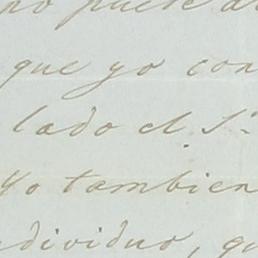 no puede
que yo con
lado el Sr
Yo tambien
individuo, qu